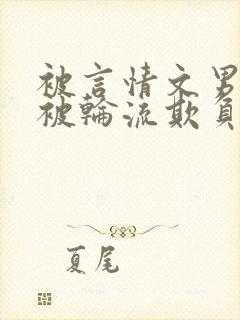 被言情文男
被輪流欺負
夏尾